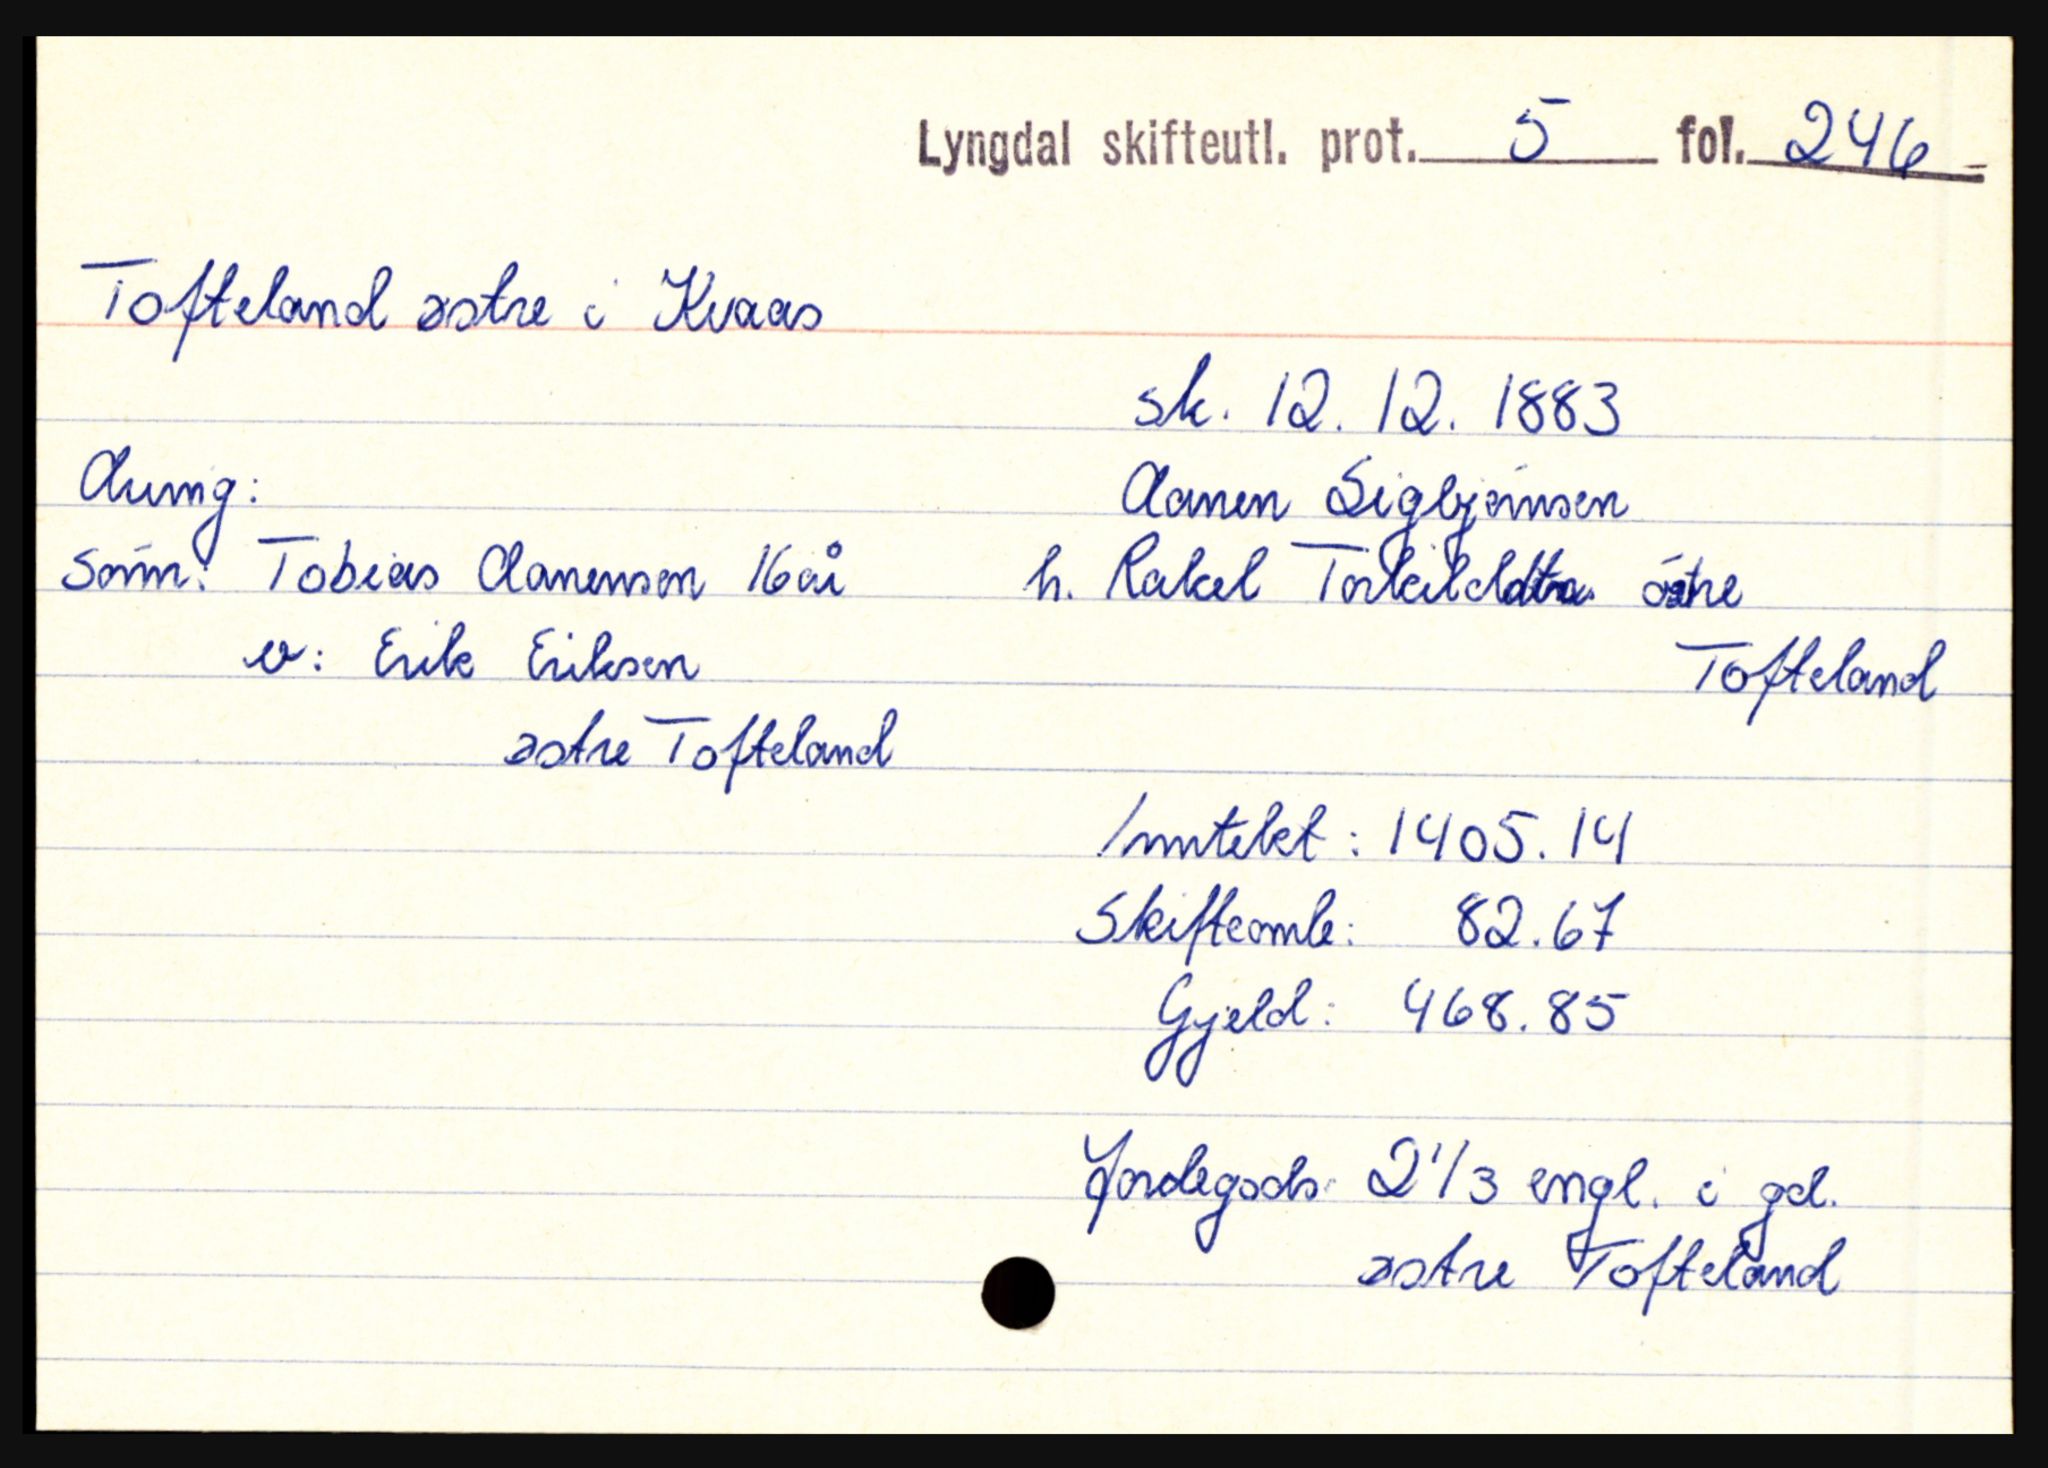 Lyngdal skifteutl. prot. 5 fol. 246 -
Tofteland østre i Kvaas
sk. 12. 12. 1883
Arving:
Aanen Sigbjørnsen
sønn: Tobias Aanensen 16 år
h. Rakel Torkilddtr. østre
v: Erik Eriksen
Tofteland
østre Tofteland
Inntekt: 1405.14
Skifteomk: 82.67
Gjeld: 468.85
Jordegods: 2 1/3 engl. i gd.
østre Tofteland